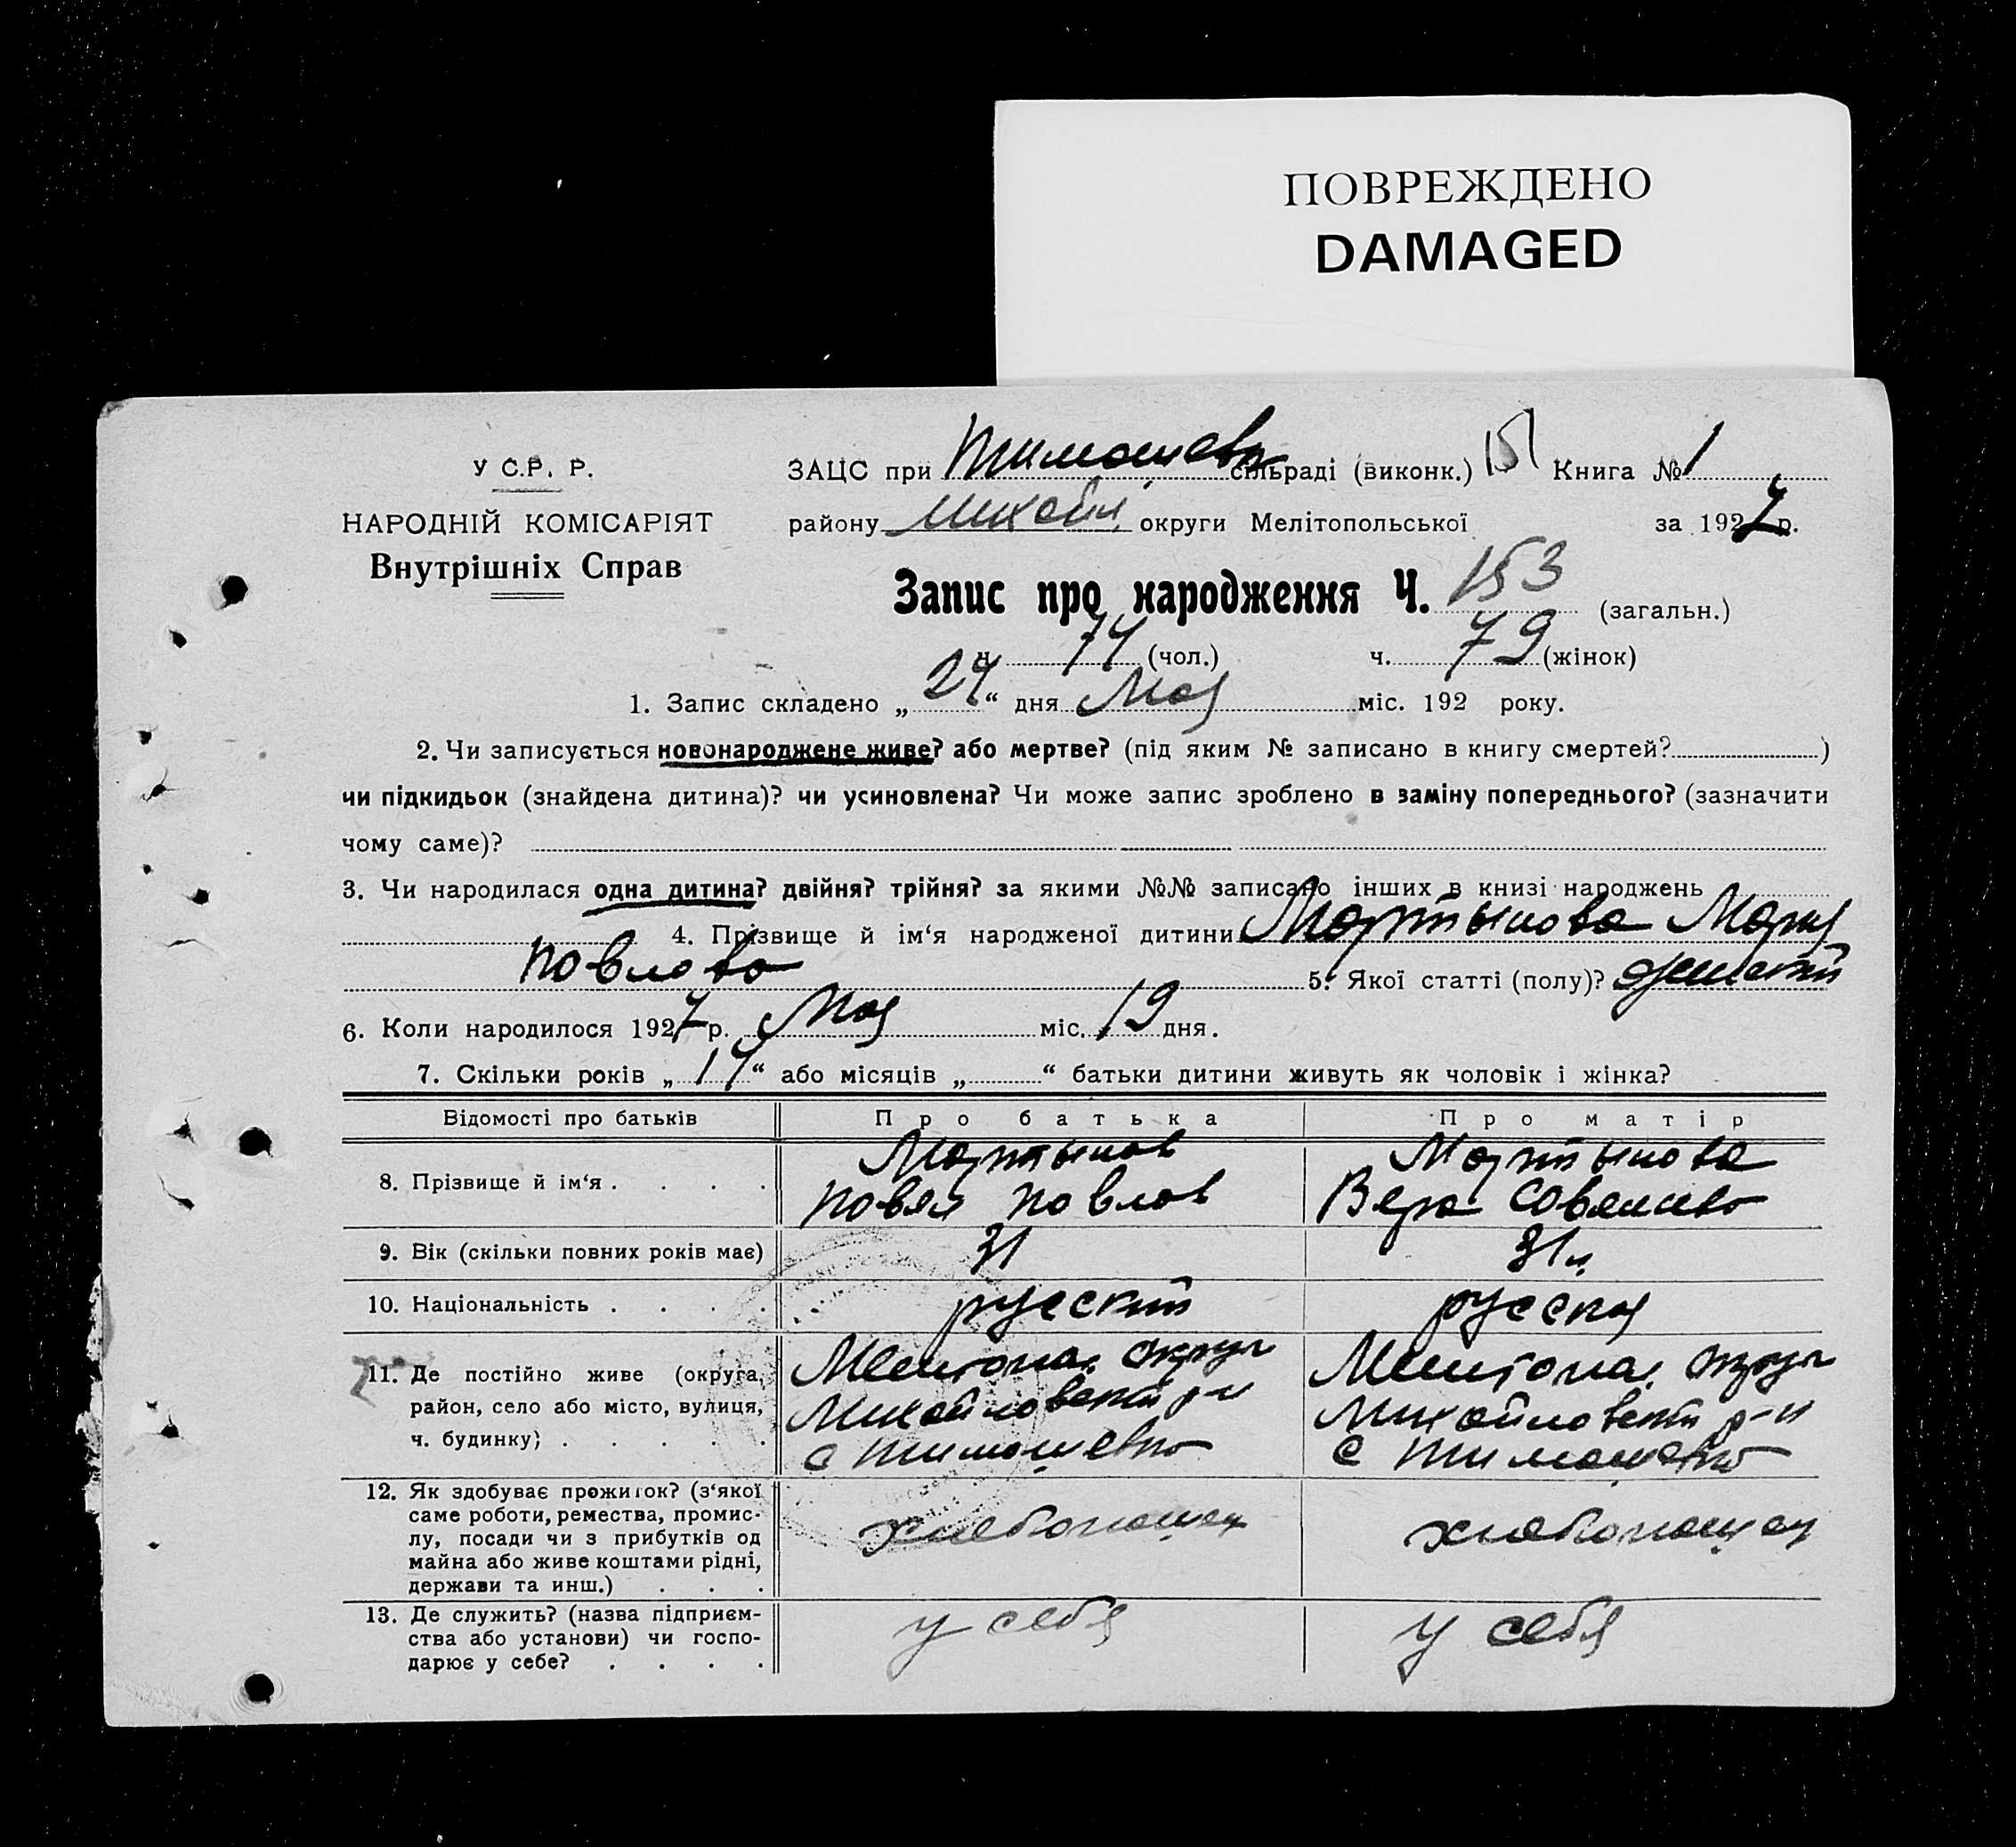 ПОВРЕЖДЕНО
DAMAGED
У С.Р. Р.
НАРОДНІЙ КОМІСАРІЯТ
Внутрішніх Справ
ЗАЦС при Тимошевк сільраді (виконк.) 151 Книга № 1
району Михайл. округи Мелітопольської за 1927 р.
Запис про народження Ч. 153 (загальн.)
ч. 74 (чол.) ч. 79 (жінок)
1. Запис складено „24“ дня Мая міс. 192 року.
2. Чи записується новонароджене живе? або мертве? (під яким № записано в книгу смертей? )
чи підкидьок (знайдена дитина)? чи усиновлена? Чи може запис зроблено в заміну попереднього? (зазначити
чому саме)?
3. Чи народилася одна дитина? двійня? трійня? за якими №№ записано інших в книзі народжень
4. Прізвище й ім‘я народженої дитини Мартынова Мария
Павлова 5. Якої статті (полу)? женский
6. Коли народилося 1927 р. Мая міс. 19 дня.
7. Скільки років „14“ або місяців „ “ батьки дитини живуть як чоловік і жінка?
Відомості про батьків Про батька Про матір
8. Прізвище й ім‘я . . . . Мартынов Мартынова
Павел Павлов Вера
9. Вік (скільки повних років має) 31 31 л.
10. Національність . . . . русский русская
11. Де постійно живе (округа, Мелитопол. округ Мелитопол. округ
район, село або місто, вулиця, Михайловский р-н Михайловский р-н
ч. будинку) . . . . . с Тимошевка с Тимошевка
12. Як здобуває прожиток? (з‘якої
саме роботи, ремества, промис-
лу, посади чи з прибутків од хлебопашец хлебопашец
майна або живе коштами рідні,
держави та инш.) . . .
13. Де служить? (назва підприєм- у себя у себя
ства або установи) чи госпо-
дарює у себе? . . . .